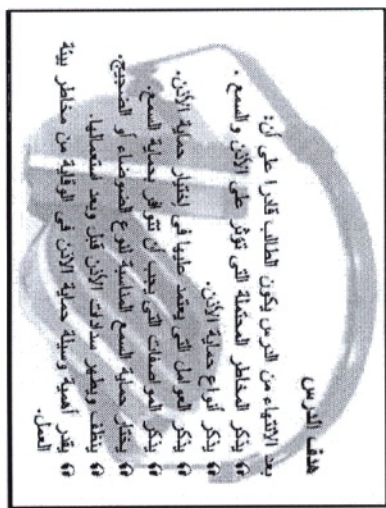 هدف الدرس
بعد الانتهاء من الدرس يكون الطالب قادرا على أن:
يذكر المخاطر المحتملة التى تؤثر على الأذن والسمع.
يذكر أنواع حماية الأذن.
يذكر العوامل التى يعتمد عليها فى اختيار حماية الأذن.
يذكر المواصفات التى يجب أن تتوافر لحماية السمع.
يختار حماية السمع المناسبة لنوع الضوضاء أو الضجيج.
ينظف ويطهر سدادت الأذن قبل وبعد استعمالها.
يقدر أهمية وسيلة حماية الأذن فى الوقاية من مخاطر بيئة
العمل.